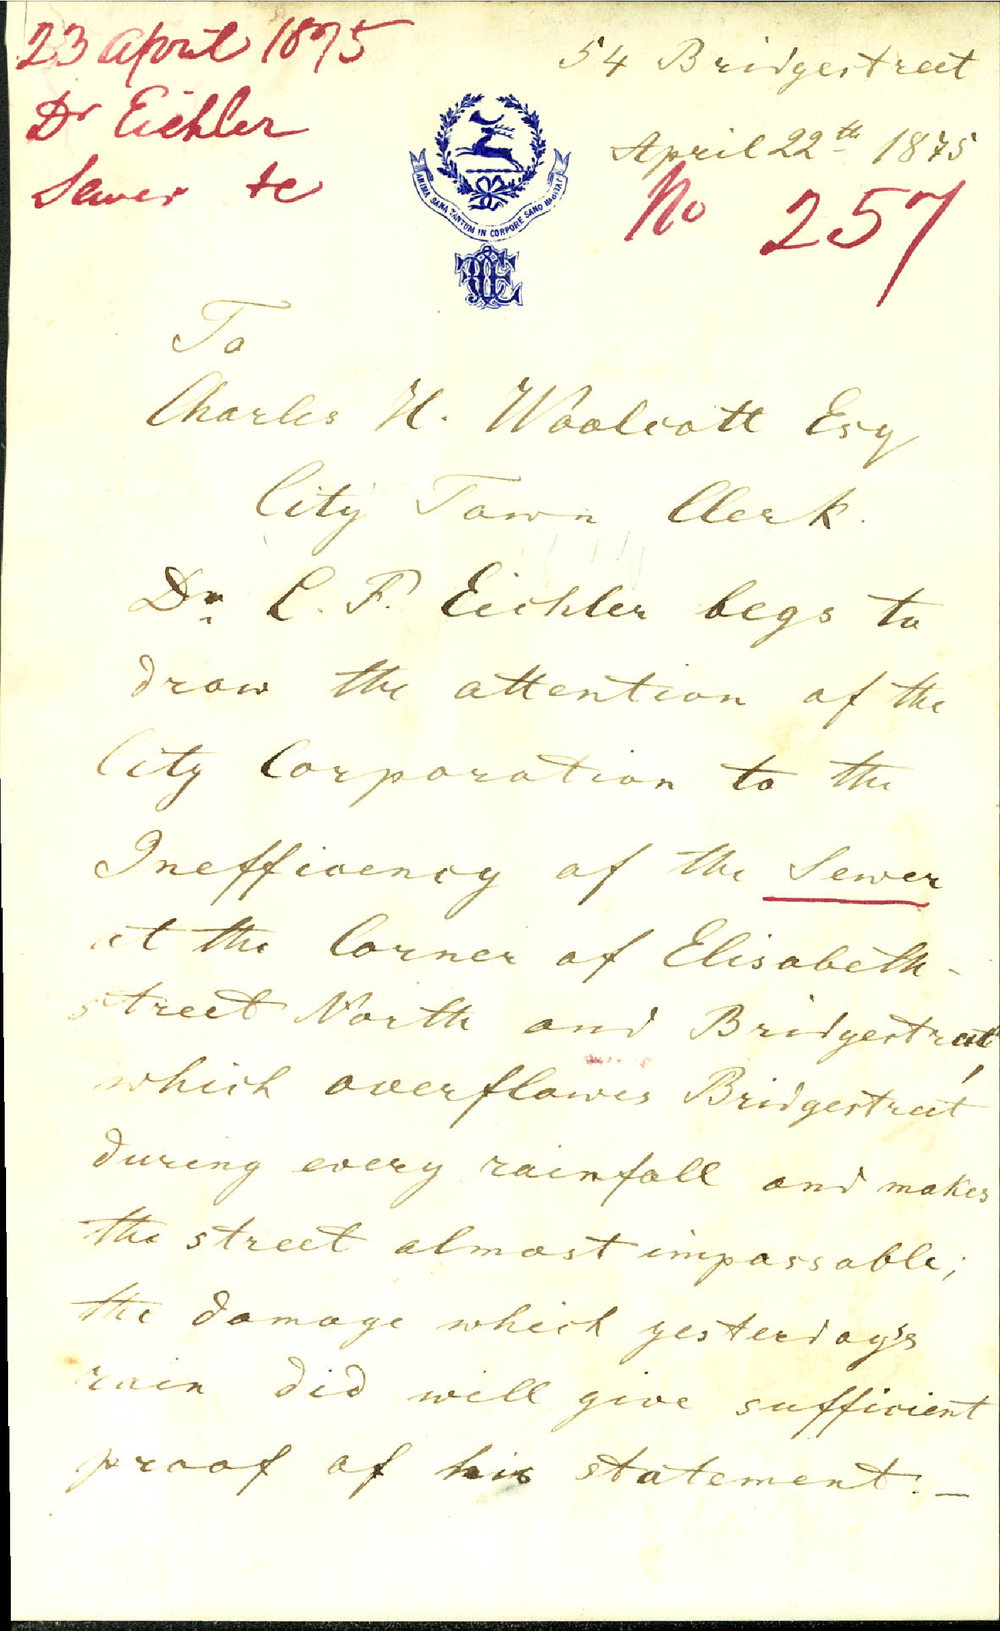 23 April 1875
Dr Eichler
Sewer &c
54 Bridgestreet
April 22th 1875
No 257
ANIMA SANA TANTUM IN CORPORE SANO HABITAT
To
Charles H. Woolcott Esq
City Town Clerk.
Dr. C. F. Eichler begs to
draw the attention of the
City Corporation to the
Inefficency of the Sewer
at the Corner of Elisabeth-
street North and Bridgestreet,
which overflowes Bridgestreet
during every rainfall and makes
the street almost impassable;
the damage which yesterday's
rain did will give sufficient
proof of his statement. —